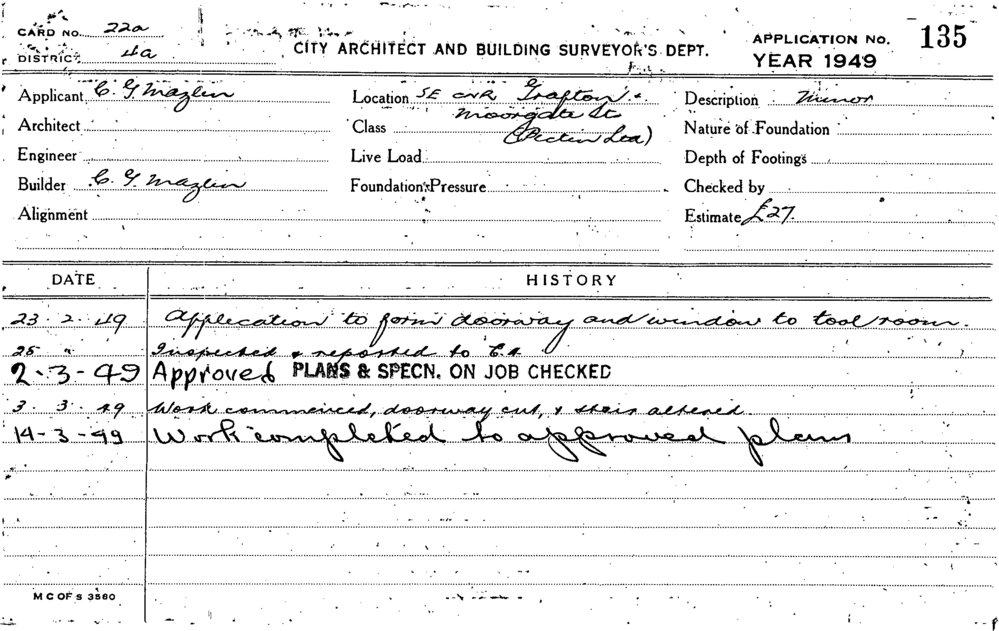 CARD No. 22a
DISTRICT 4a
CITY ARCHITECT AND BUILDING SURVEYOR'S DEPT.
APPLICATION No. 135
YEAR 1949
Applicant C. G. Mazlin
Location SE CNR Grafton &
Moorgate St
Description Minor
Architect
Class (Victin Lea)
Nature of Foundation
Engineer
Live Load
Depth of Footings
Builder C. G. Mazlin
Foundation Pressure
Checked by
Alignment
Estimate £27.
DATE HISTORY
23.2.49 Application to form doorway and window to tool room.
25 " Inspected & reported to C.A.
2-3-49 Approved PLANS & SPECN. ON JOB CHECKED
3.3.49 Work commenced, doorway cut, & stair altered
14-3-49 Work completed to approved plans
M C OF S 3560